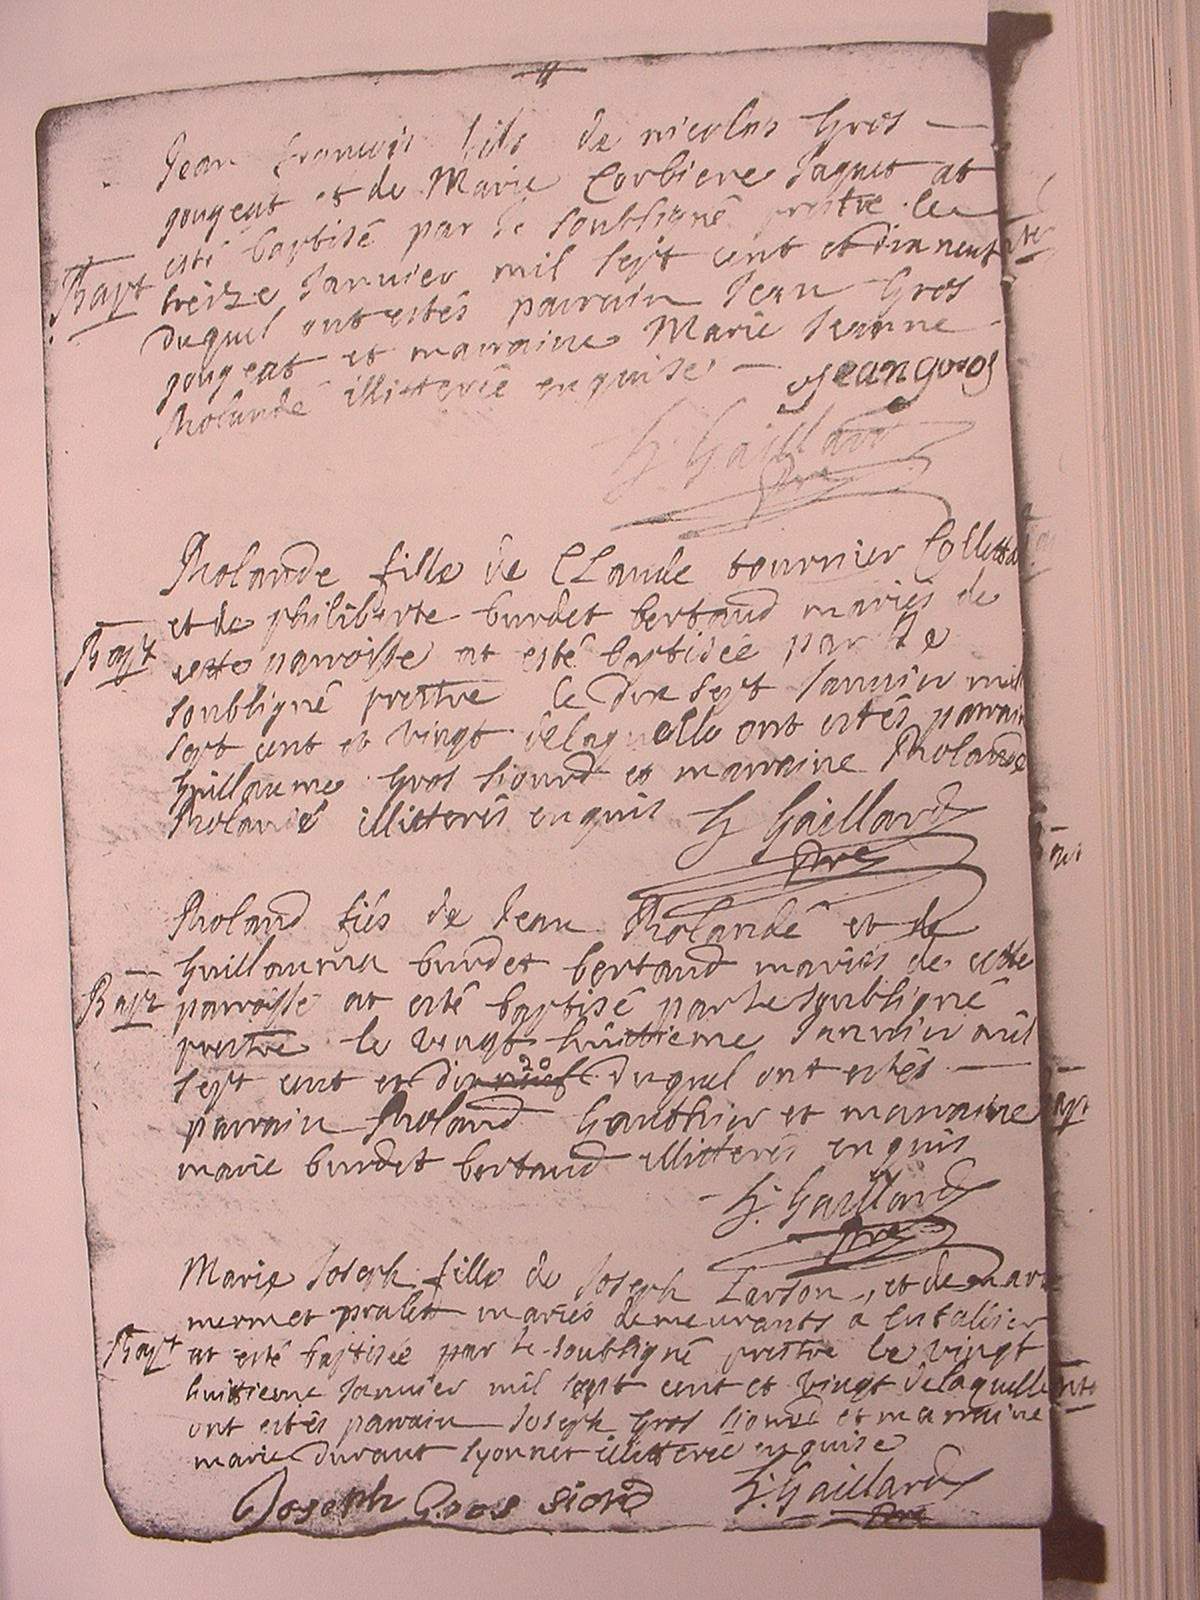 Jean francois fils de nicolas Gros
gougeat et de Marie Corbiere Jaquet at
esté baptisé par Le soubsigné prestre le
Bapt treize Janvier mil sept cent et dix neuf
duquel ont estés parrain Jean Gros
gougeat et marraine Marie Jeanne
Rolande illitterée enquise Jean gros
G. Gaillard
Pre
Rolande fille de CLaude tournier Collettaz
et de philiberte burdet bertaud mariés de
Bapt cette parroisse at esté baptisée par Le
soubsigné prestre le dix sept Janvier mil
sept cent et vingt delaquelle ont estés parrain
Guillaume Gros siourd et marraine Rolande
Rolande illitterés enquis G Gaillard
Pre
Roland fils de Jean Rolande et de
Guillauma burdet bertaud mariés de cette
Bapt parroisse at esté baptisé par Le soubsigné
prestre le vingt huittieme Janvier mil
sept cent et dix neuf 20 duquel ont estés
parrain Roland Gauthier et marraine
marie burdet bertaud illitterés enquis
G. Gaillard
Pre
Marie Joseph fille de Joseph Larson, et de
mermet pralet mariés demeurants a
Bapt at esté baptisée par Le soubsigné prestre le vingt
huittieme Janvier mil sept cent et vingt delaquelle
ont estés parrain Joseph Gros siourd et marraine
marie durant Lyonnet illitterée enquise
Joseph Gros siord G. Gaillard
Pre